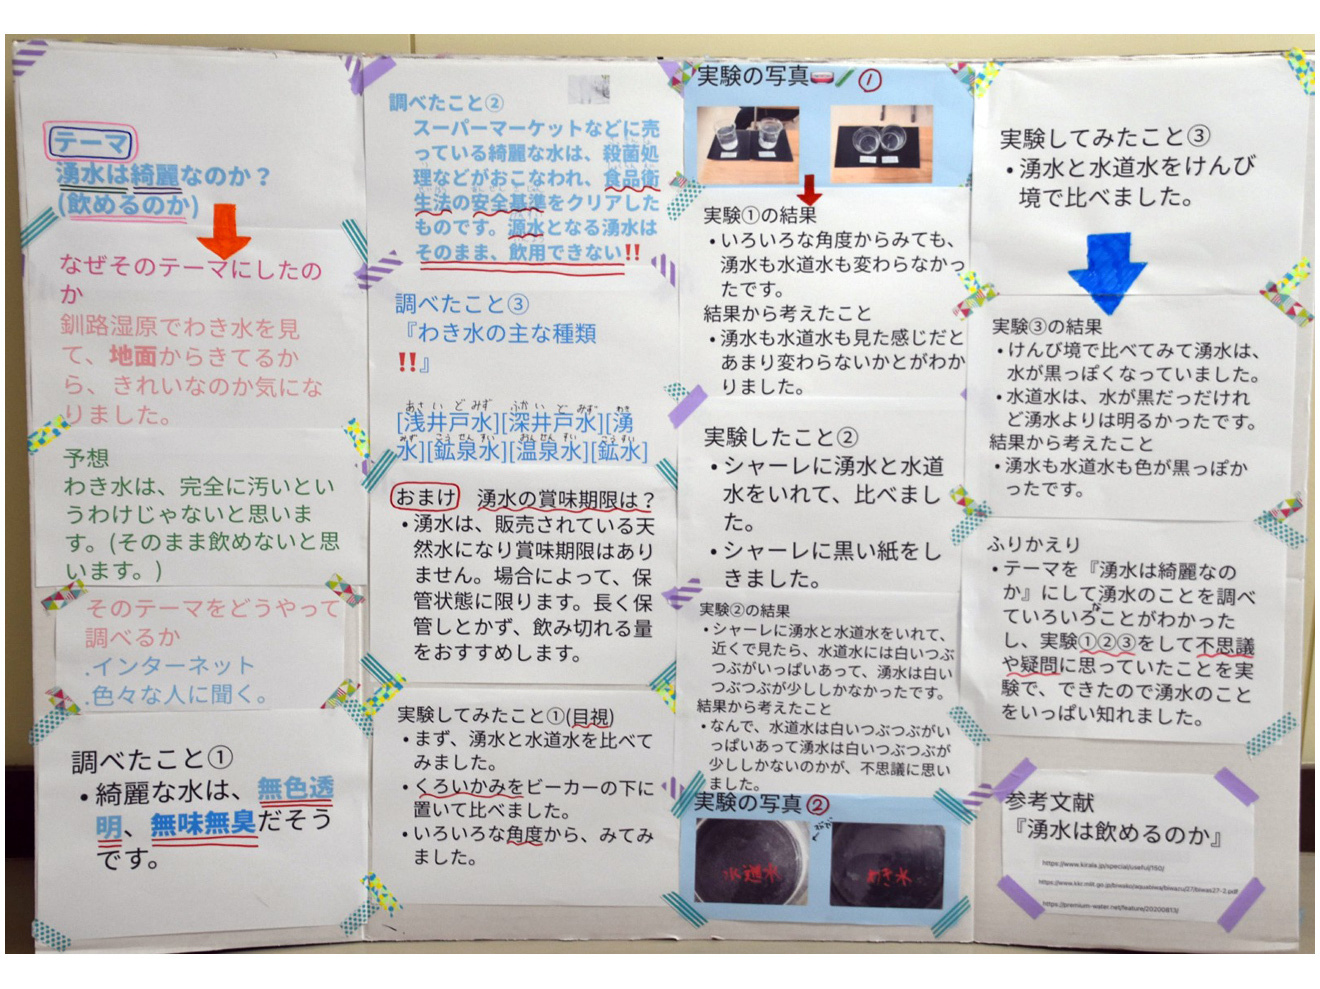 テーマ
湧水は綺麗なのか？
(飲めるのか)
なぜそのテーマにしたの
か
釧路湿原でわき水を見
て、地面からきてるか
ら、きれいなのか気にな
りました。
予想
わき水は、完全に汚いとい
うわけじゃないと思いま
す。(そのまま飲めないと思
います。)
そのテーマをどうやって
調べるか
.インターネット
.色々な人に聞く。
調べたこと①
・綺麗な水は、無色透
明、無味無臭だそう
です。
調べたこと②
スーパーマーケットなどに売
っている綺麗な水は、殺菌処
理などがおこなわれ、食品衛
生法の安全基準をクリアした
ものです。源水となる湧水は
そのまま、飲用できない‼
調べたこと③
『わき水の主な種類
‼』
あさいどみず ふかいどみず わき
[浅井戸水][深井戸水][湧
みず こうせんすい おんせんすい こうすい
水][鉱泉水][温泉水][鉱水]
おまけ 湧水の賞味期限は？
・湧水は、販売されている天
然水になり賞味期限はあり
ません。場合によって、保
管状態に限ります。長く保
管しとかず、飲み切れる量
をおすすめします。
実験してみたこと①(目視)
・まず、湧水と水道水を比べて
みました。
・くろいかみをビーカーの下に
置いて比べました。
・いろいろな角度から、みてみ
ました。
実験の写真①
実験①の結果
・いろいろな角度からみても、
湧水も水道水も変わらなかっ
たです。
結果から考えたこと
・湧水も水道水も見た感じだと
あまり変わらないかとがわか
りました。
実験したこと②
・シャーレに湧水と水道
水をいれて、比べまし
た。
・シャーレに黒い紙をし
きました。
実験②の結果
・シャーレに湧水と水道水をいれて、
近くで見たら、水道水には白いつぶ
つぶがいっぱいあって、湧水は白い
つぶつぶが少ししかなかったです。
結果から考えたこと
・なんで、水道水は白いつぶつぶがい
っぱいあって湧水は白いつぶつぶが
少ししかないのかが、不思議に思い
ました。
実験の写真②
水道水
わき水
実験してみたこと③
・湧水と水道水をけんび
境で比べました。
実験③の結果
・けんび境で比べてみて湧水は、
水が黒っぽくなっていました。
・水道水は、水が黒だっだけれ
ど湧水よりは明るかったです。
結果から考えたこと
・湧水も水道水も色が黒っぽか
ったです。
ふりかえり
・テーマを『湧水は綺麗なの
か』にして湧水のことを調べ
ていろいろことがわかった
し、実験①②③をして不思議
や疑問に思っていたことを実
験で、できたので湧水のこと
をいっぱい知れました。
参考文献
『湧水は飲めるのか』
https://www.kirala.jp/special/useful/150/
https://premium-water.net/feature/20200813/